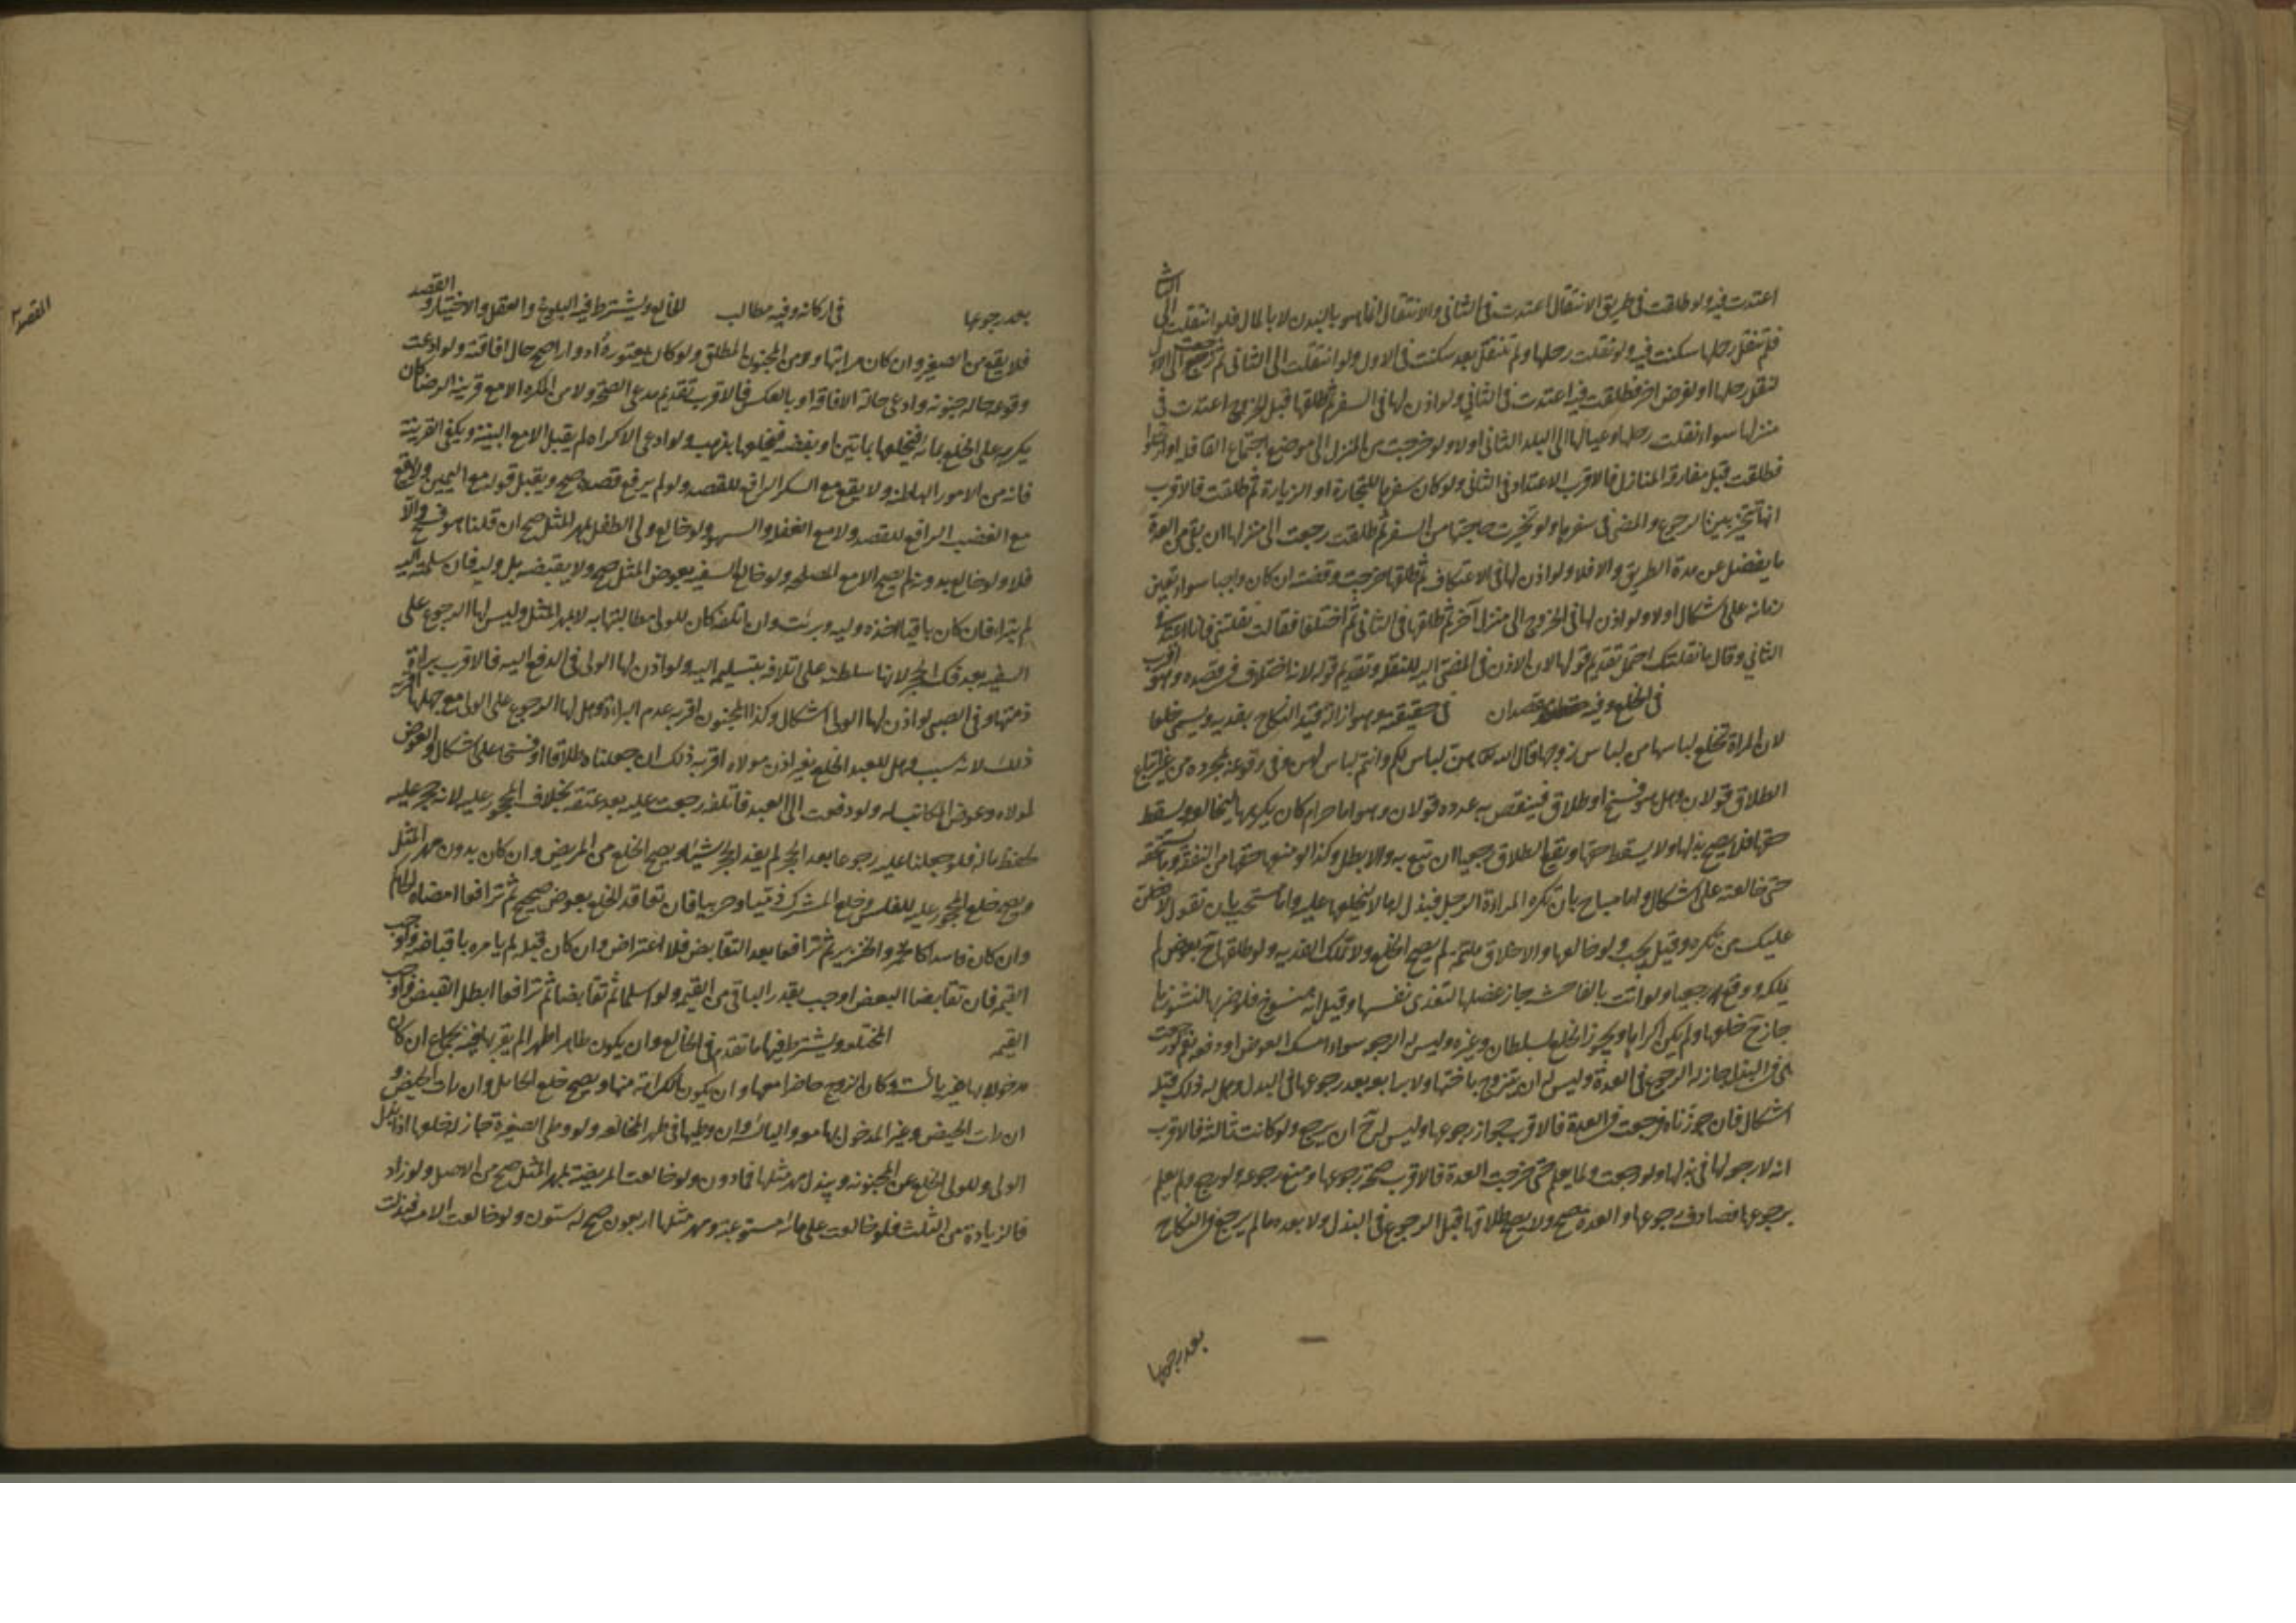 اعتدت فيه ولو طلقت في طريق الانتقال اعتدت في الثاني والانتقال انما هو بالبدن لا بالمال فلو انتقلت الى الثاني
فلم تنقل رحلها سكنت فيه ولو نقلت رحلها ولم تنتقل بعد سكنت في الاول ولو انتقلت الى الثاني ثم رجعت الى الاول
لنقل رحلها او لغرض اخر فطلقت فيه اعتدت في الثاني ولو اذن لها في السفر ثم طلقها قبل الخروج اعتدت في
منزلها سواء نقلت رحلها وعيالها الى البلد الثاني اولا ولو خرجت من المنزل الى موضع اجتماع القافلة او ارتحلوا
فطلقت قبل مفارقة المنازل فالاقرب الاعتداد في الثاني ولو كان سفرها للتجارة او الزيارة ثم طلقت فالاقرب
انها تتخير بين الرجوع والمضي في سفرها ولو نجزت حاجتها من السفر ثم طلقت رجعت الى منزلها ان بقي من العدة
ما يفضل عن مدة الطريق والا فلا ولو اذن لها في الاعتكاف ثم طلقها خرجت وقضته ان كان واجبا سواء تعين
زمانه على اشكال اولا ولو اذن لها في الخروج الى منزل آخر ثم طلقها في الثاني ثم اختلفا فقالت نقلتني فانا اعتد في
الثاني وقال ما نقلتك احتمل تقديم قولها لان الاذن في المضي اليه للنقلة وتقديم قوله لانه اختلاف في قصده وهو اقرب
في الخلع وفيه مقصدان في حقيقته وهو ازالة قيد النكاح بفدية ويسمى خلعا
لان المراة تخلع لباسها من لباس زوجها قال الله تعالى هن لباس لكم وانتم لباس لهن وفي وقوعه بمجرده من غير اتباع
الطلاق قولان وهل هو فسخ او طلاق فينقص به عدده قولان وهو اما حرام كان يكرهها ليخالعه ويسقط
حقها فلا يصح بذلها ولا يسقط حقها ويقع الطلاق رجعيا ان تبع به والا بطل وكذا لو منعها حقها من النفقة وما تستحقه
حتى خالعته على اشكال واما مباح بان تكره المراة الرجل فتبذل له مالا ليخلعها عليه واما مستحب بان تقول لادخلن
عليك من تكره وقيل يجب ولو خالعها والاخلاق ملتئمة لم يصح الخلع ولا تملك الفدية ولو طلقها ح بعوض لم
يملكه ووقع رجعيا ولو اتت بالفاحشة جاز عضلها لتفتدي نفسها وقيل انه منسوخ فلو ضربها للنشوز بها
جاز ح خلعها ولم يكن اكراها ويجوز الخلع بسلطان وغيره وليس له الرجوع سواء امسك العوض او دفعه نعم لو رجعت
هي في البذل جاز له الرجوع في العدة وليس له ان يتزوج باختها ولا برابعة بعد رجوعها في البذل وهل له ذلك قبله
اشكال فان جوزناه فرجعت في العدة فالاقرب جواز رجوعها وليس له ح ان يرجع ولو كانت ثالثة فالاقرب
انه لا رجوع لها في بذلها ولو رجعت ولما يعلم حتى خرجت العدة فالاقرب صحة رجوعها ومنع رجوعه ولو رجع ولم يعلم
برجوعها فصادف رجوعها والعدة صح ولا يصح طلاقها قبل الرجوع في البذل ولا بعده ما لم يرجع في النكاح
بعد رجوعها
المقصد ٢
بعد رجوعها في اركانه وفيه مطالب الخالع ويشترط فيه البلوغ والعقل والاختيار والقصد
فلا يقع من الصغير وان كان مراهقا ومن المجنون المطلق ولو كان يعتوره ادوارا صح حال افاقته ولو ادعت
وقوعه حالة جنونه وادعى حالة الافاقة او بالعكس فالاقرب تقديم مدعي الصحة ولا من المكره الا مع قرينة الرضا كان
يكره على الخلع بماية فيخلعها بماتين او بفضة فيخلعها بذهب ولو ادعى الاكراه لم يقبل الا مع البينة ويكفي القرينة
فانه من الامور الباطنة ولا يقع مع السكر الرافع للقصد ولو لم يرفع قصده صح ويقبل قوله مع اليمين ولا يقع
مع الغضب الرافع للقصد ولا مع الغفلة والسهو ولو خالع ولي الطفل بمهر المثل صح ان قلنا هو فسخ والا
فلا ولو خالع بدونه لم يصح الا مع المصلحة ولو خالع السفيه بعوض المثل صح ولا يقبضه بل وليه فان سلمته اليه
لم تبرا فان كان باقيا اخذه وليه وبرئت وان اتلفه كان للولي مطالبتها به لا بمهر المثل وليس لها الرجوع على
السفيه بعد فك الحجر لانها سلطته على اتلافه بتسليمه اليه ولو اذن لها الولي في الدفع اليه فالاقرب براءة
ذمتها وفي الصبي لو اذن لها الولي اشكال وكذا المجنون اقربه عدم البراءة وهل لها الرجوع على الولي مع جهلها اقربه
ذلك لانه سبب وهل للعبد الخلع بغير اذن مولاه اقربه ذلك ان جعلناه طلاقا او فسخا على اشكال والعوض
لمولاه وعوض المكاتب له ولو دفعت الى العبد فاتلفه رجعت عليه بعد عتقه بخلاف المحجور عليه لانه حجر عليه
لحفظ ماله فلو جعلنا عليه رجوعا بعد الحجر لم يفد الحجر شيئا ويصح الخلع من المريض وان كان بدون مهر المثل
ويصح خلع المحجور عليه للفلس وخلع المشرك ذميا وحربيا فان تعاقدا الخلع بعوض صحيح ثم ترافعا امضاه الحاكم
وان كان فاسدا كالخمر والخنزير ثم ترافعا بعد التقابض فلا اعتراض وان كان قبله لم يامره باقباضه واوجب
القيمة فان تقابضا البعض اوجب بقدر الباقي من القيمة ولو اسلما ثم تقابضا ثم ترافعا ابطل القبض واوجب
القيمة المختلعة ويشترط فيها ما تقدم في الخالع وان يكون طاهرا طهرا لم يقربها فيه بجماع ان كان
مدخولا بها غير يائسة وكان الزوج حاضرا معها وان يكون الكراهة منها ويصح خلع الحامل وان رات الحيض و
ان رات الحيض وغير المدخول بها معه واليائسة وان وطيها في طهر المخالعة ولو وطي الصغيرة جاز له خلعها اذا بذل
الولي وللولي الخلع عن المجنونة ويبذل مهر مثلها فما دون ولو خالعت المريضة بمهر المثل صح من الاصل ولو زاد
فالزيادة من الثلث فلو خالعت على ماية مستوعبة ومهر مثلها اربعون صح له ستون ولو خالعت الامة فبذلت